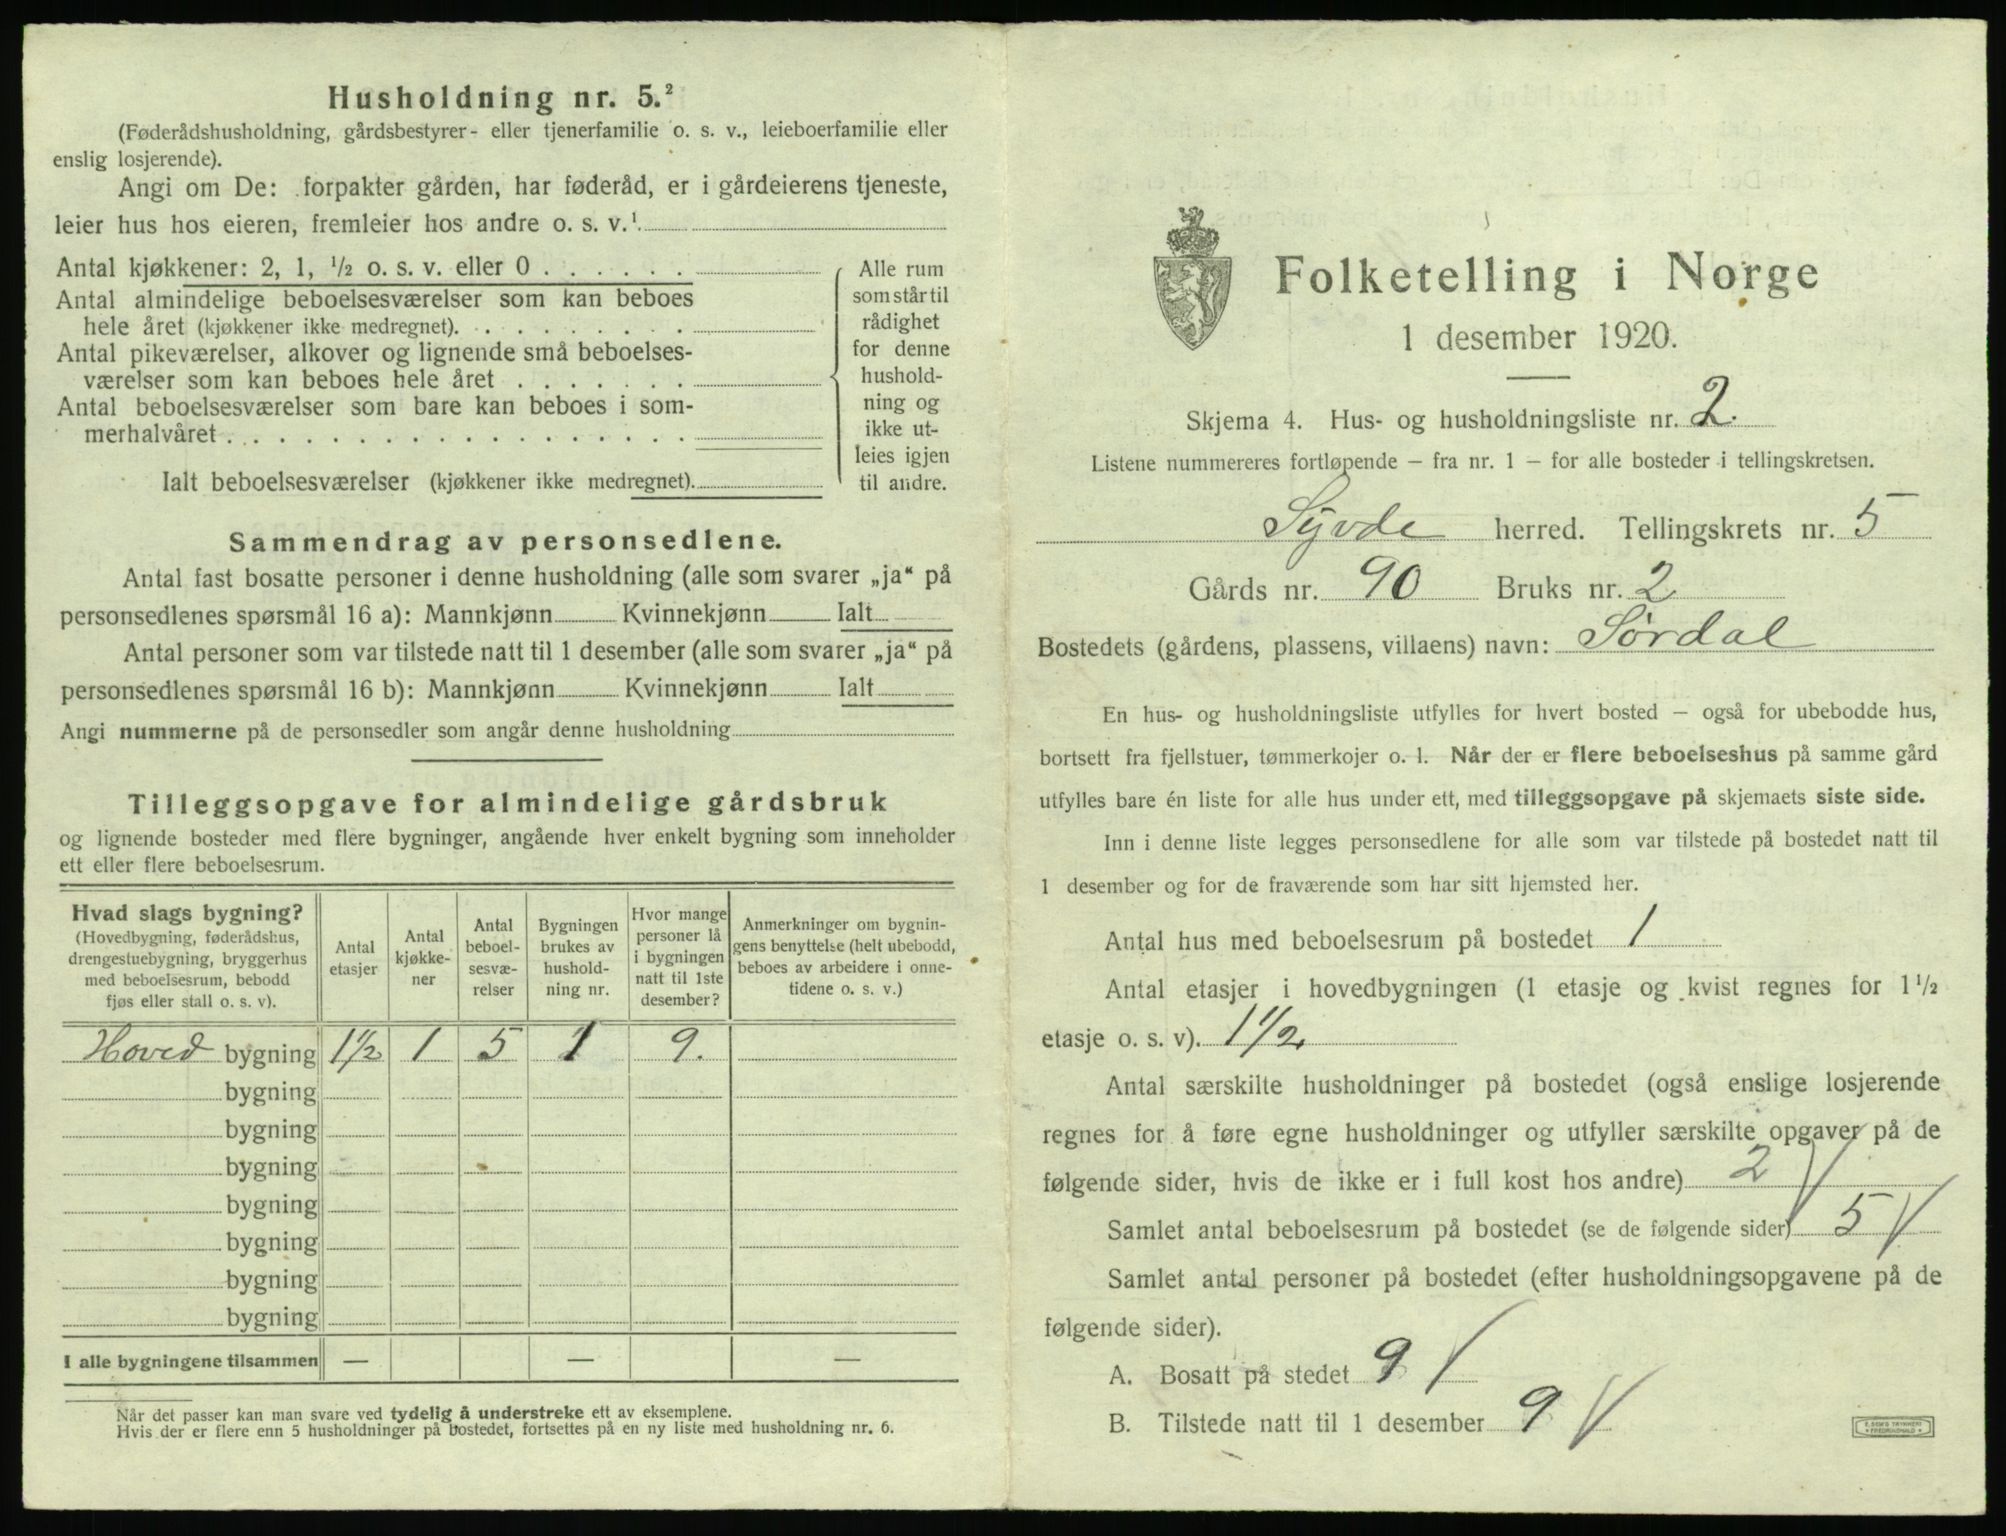 Husholdning nr. 5.²
(Føderådshusholdning, gårdsbestyrer- eller tjenerfamilie o. s. v., leieboerfamilie eller
enslig losjerende).
Angi om De: forpakter gården, har føderåd, er i gårdeierens tjeneste,
leier hus hos eieren, fremleier hos andre o. s. v.¹
Antal kjøkkener: 2, 1, ½ o. s. v. eller 0
Antal almindelige beboelsesværelser som kan beboes
hele året (kjøkkener ikke medregnet).
Antal pikeværelser, alkover og lignende små beboelses-
værelser som kan beboes hele året
Antal beboelsesværelser som bare kan beboes i som-
merhalvåret
Ialt beboelsesværelser (kjøkkener ikke medregnet).
Alle rum
som står til
rådighet
for denne
hushold-
ning og
ikke ut-
leies igjen
til andre.
Sammendrag av personsedlene.
Antal fast bosatte personer i denne husholdning (alle som svarer „ja“ på
personsedlenes spørsmål 16 a): Mannkjønn Kvinnekjønn Ialt
Antal personer som var tilstede natt til 1 desember (alle som svarer „ja“ på
personsedlenes spørsmål 16 b): Mannkjønn Kvinnekjønn Ialt
Angi nummerne på de personsedler som angår denne husholdning
Tilleggsopgave for almindelige gårdsbruk
og lignende bosteder med flere bygninger, angående hver enkelt bygning som inneholder
ett eller flere beboelsesrum.
Hvad slags bygning?
(Hovedbygning, føderådshus,
drengestuebygning, bryggerhus
med beboelsesrum, bebodd
fjøs eller stall o. s. v).
Antal
etasjer
Antal
kjøkke-
ner
Antal
beboel-
sesvæ-
relser
Bygningen
brukes av
hushold-
ning nr.
Hvor mange
personer lå
i bygningen
natt til 1ste
desember?
Anmerkninger om bygnin-
gens benyttelse (helt ubebodd,
beboes av arbeidere i onne-
tidene o. s. v.)
Hoved bygning 1½ 1 5 1 9.
bygning
bygning
bygning
bygning
bygning
bygning
bygning
I alle bygningene tilsammen — — —
Når det passer kan man svare ved tydelig å understreke ett av eksemplene.
Hvis der er flere enn 5 husholdninger på bostedet, fortsettes på en ny liste med husholdning nr. 6.
Folketelling i Norge
1 desember 1920.
Skjema 4. Hus- og husholdningsliste nr. 2.
Listene nummereres fortløpende – fra nr. 1 – for alle bosteder i tellingskretsen.
Syvde herred. Tellingskrets nr. 5
Gårds nr. 90 Bruks nr. 2
Bostedets (gårdens, plassens, villaens) navn: Sørdal
En hus- og husholdningsliste utfylles for hvert bosted – også for ubebodde hus,
bortsett fra fjellstuer, tømmerkojer o. l. Når der er flere beboelseshus på samme gård
utfylles bare én liste for alle hus under ett, med tilleggsopgave på skjemaets siste side.
Inn i denne liste legges personsedlene for alle som var tilstede på bostedet natt til
1 desember og for de fraværende som har sitt hjemsted her.
Antal hus med beboelsesrum på bostedet 1
Antal etasjer i hovedbygningen (1 etasje og kvist regnes for 1½
etasje o. s. v). 1½
Antal særskilte husholdninger på bostedet (også enslige losjerende
regnes for å føre egne husholdninger og utfyller særskilte opgaver på de
følgende sider, hvis de ikke er i full kost hos andre) 2
Samlet antal beboelsesrum på bostedet (se de følgende sider) 5
Samlet antal personer på bostedet (efter husholdningsopgavene på de
følgende sider).
A. Bosatt på stedet 9
B. Tilstede natt til 1 desember 9